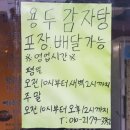 용두감자탕
포장배달가능
※영업시간※
평일
오전10시부터새벽2시까지
주말
오전10시부터오후12시까지